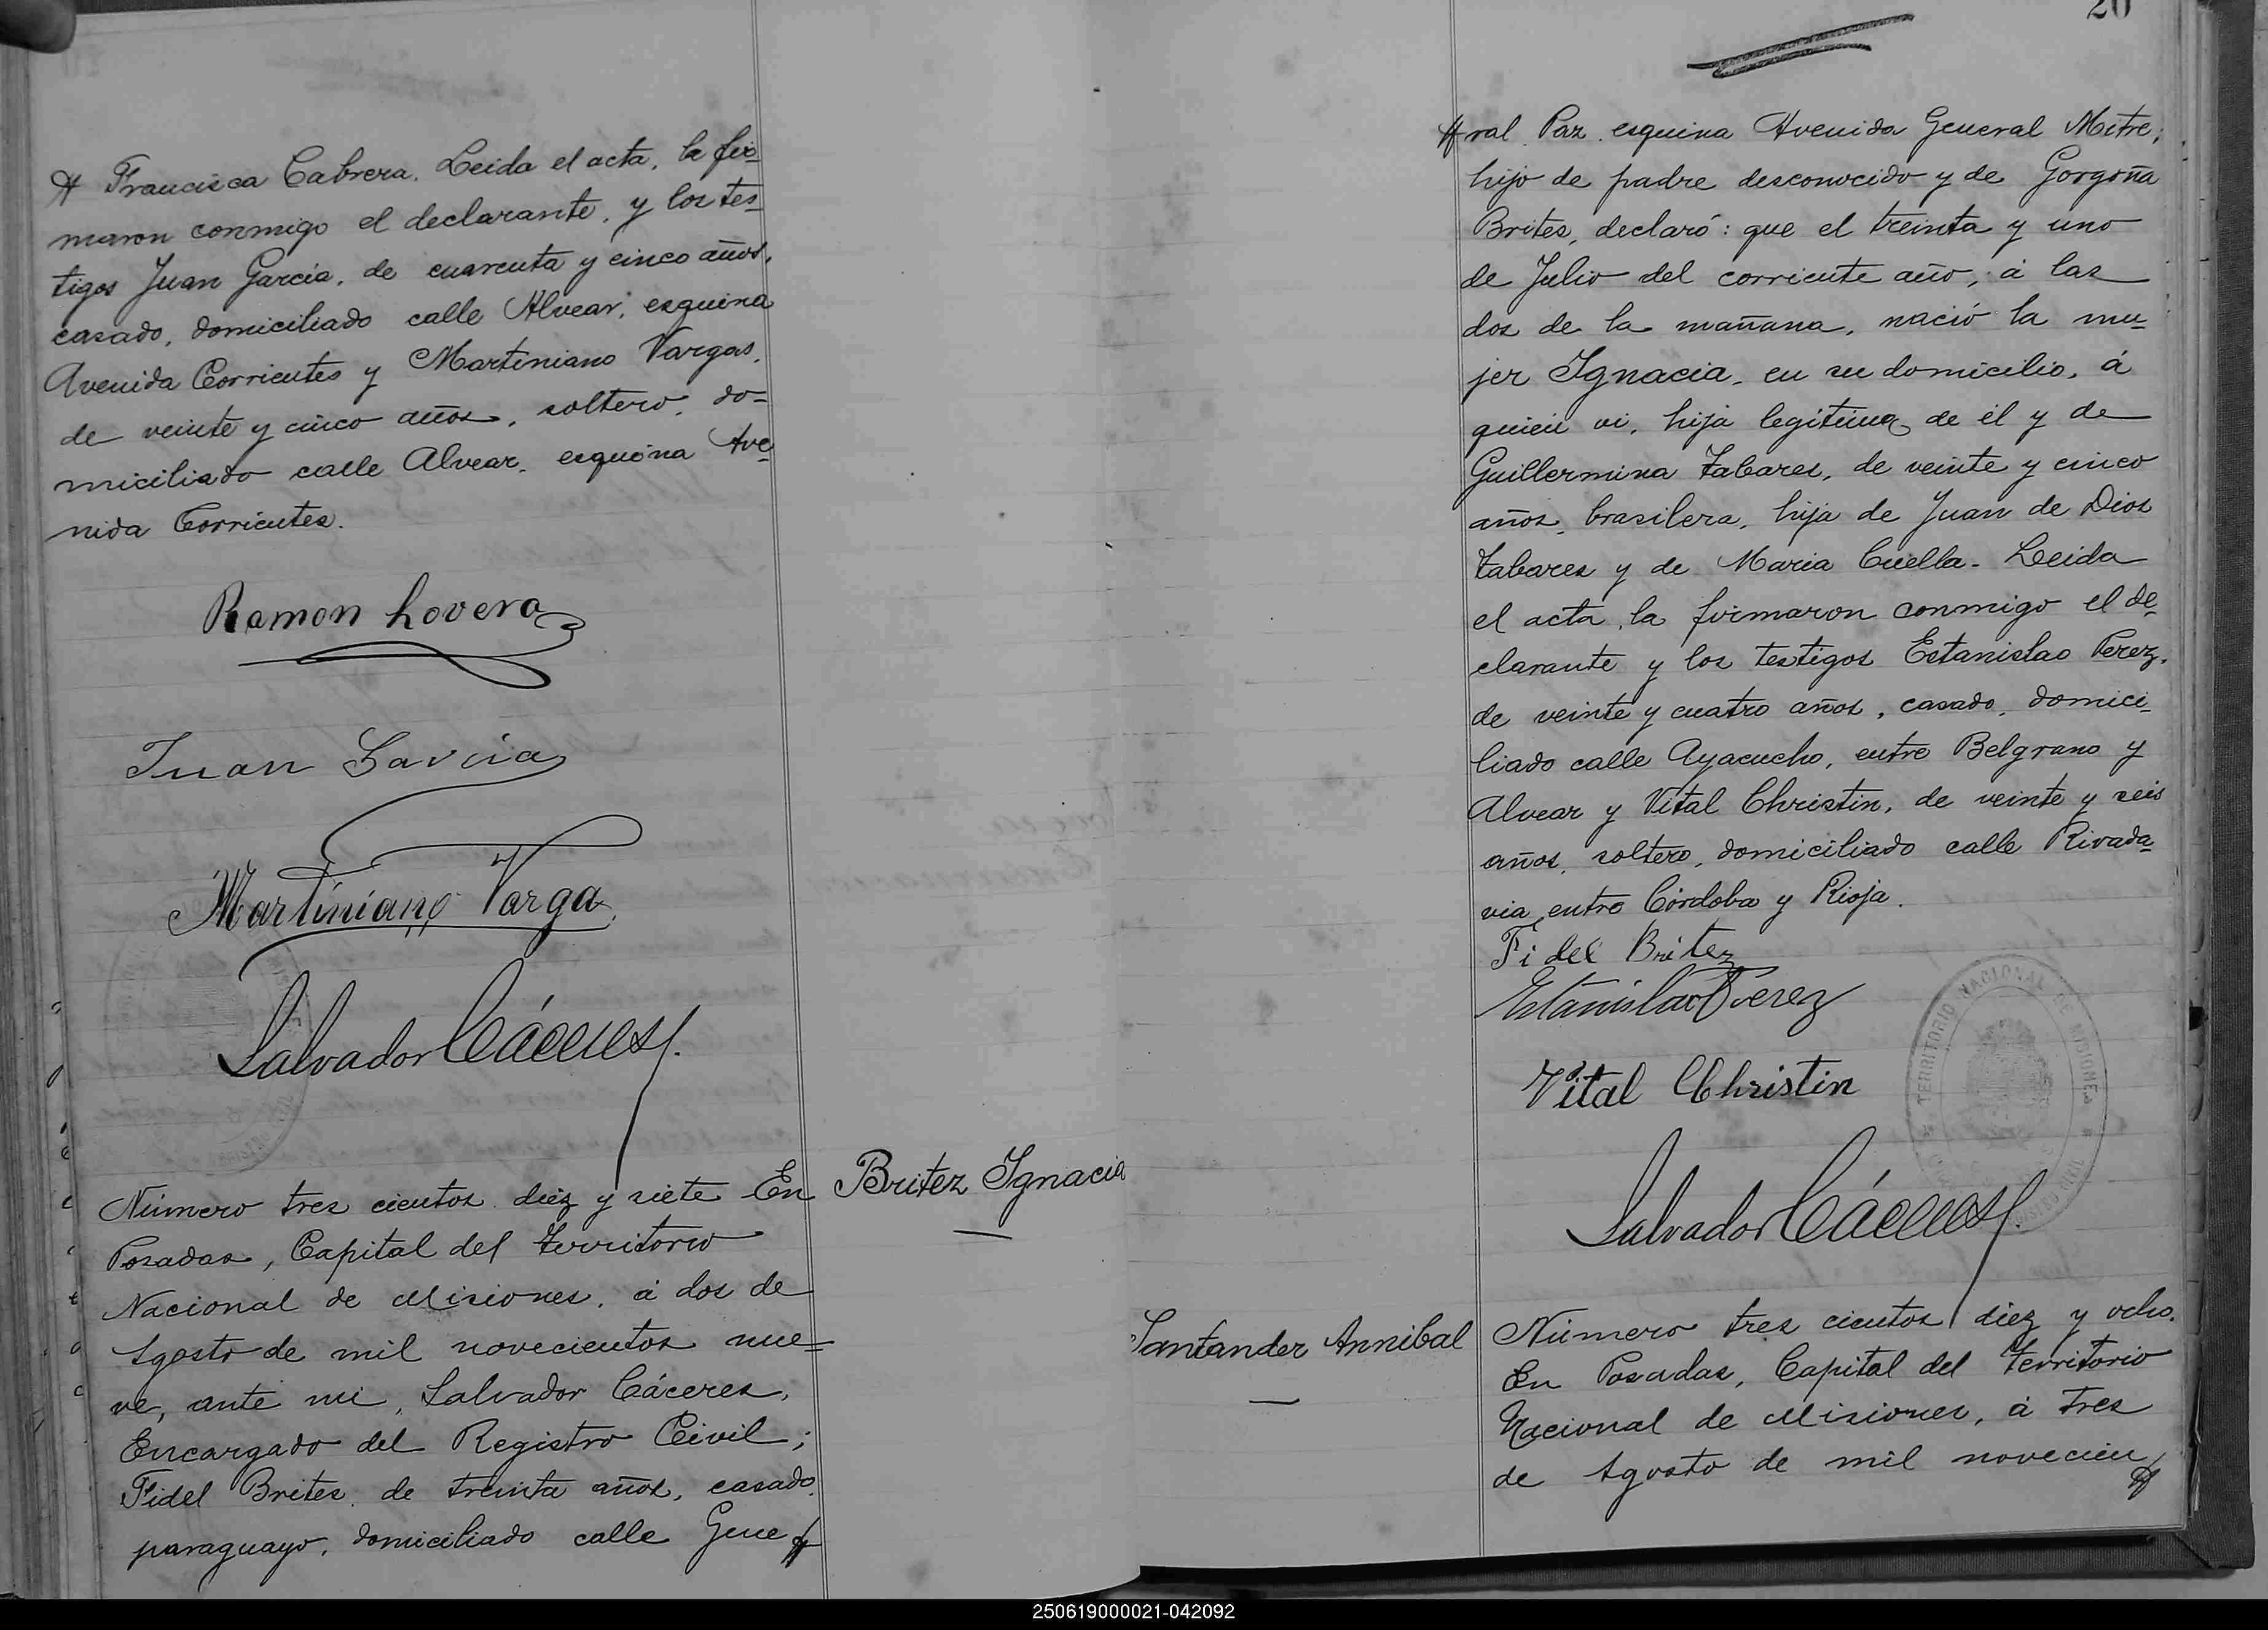 Francisca Cabrera. Leida el acta, la fir-
maron conmigo el declarante, y los tes-
tigos Juan García, de cuarenta y cinco años,
casado, domiciliado calle Alvear, esquina
Avenida Corrientes y Martiniano Vargas,
de veinte y cinco años, soltero, do-
miciliado calle Alvear, esquina Ave-
nida Corrientes.
Ramon Lovera
Juan Garcia
Martiniano Varga
Salvador Cáceres
Número tres cientos diez y siete En
Posadas, Capital del Territorio
Nacional de Misiones, á dos de
Agosto de mil novecientos nue-
ve, ante mi, Salvador Cáceres,
Encargado del Registro Civil;
Fidel Brites, de treinta años, casado,
paraguayo, domiciliado calle Gene
Britez Ignacia
20
ral Paz esquina Avenida General Mitre;
hijo de padre desconocido y de Gorgoña
Brites, declaró: que el treinta y uno
de Julio del corriente año, á las
dos de la mañana, nació la mu-
jer Ignacia, en su domicilio, á
quien vi, hija legítima de él y de
Guillermina Tabares, de veinte y cinco
años, brasilera, hija de Juan de Dios
Tabares y de Maria Cuella. Leida
el acta, la firmaron conmigo el de-
clarante y los testigos Estanislao Perez,
de veinte y cuatro años, casado, domici-
liado calle Ayacucho, entre Belgrano y
Alvear y Vital Christin, de veinte y seis
años, soltero, domiciliado calle Rivada-
via, entre Córdoba y Rioja.
Fidel Britez
Estanislao Perez
Vital Christin
TERRITORIO NACIONAL DE MISIONES
Salvador Cáceres
Santander Annibal
Número tres cientos diez y ocho.
En Posadas, Capital del Territorio
Nacional de Misiones, á tres
de Agosto de mil novecien
250619000021-042092